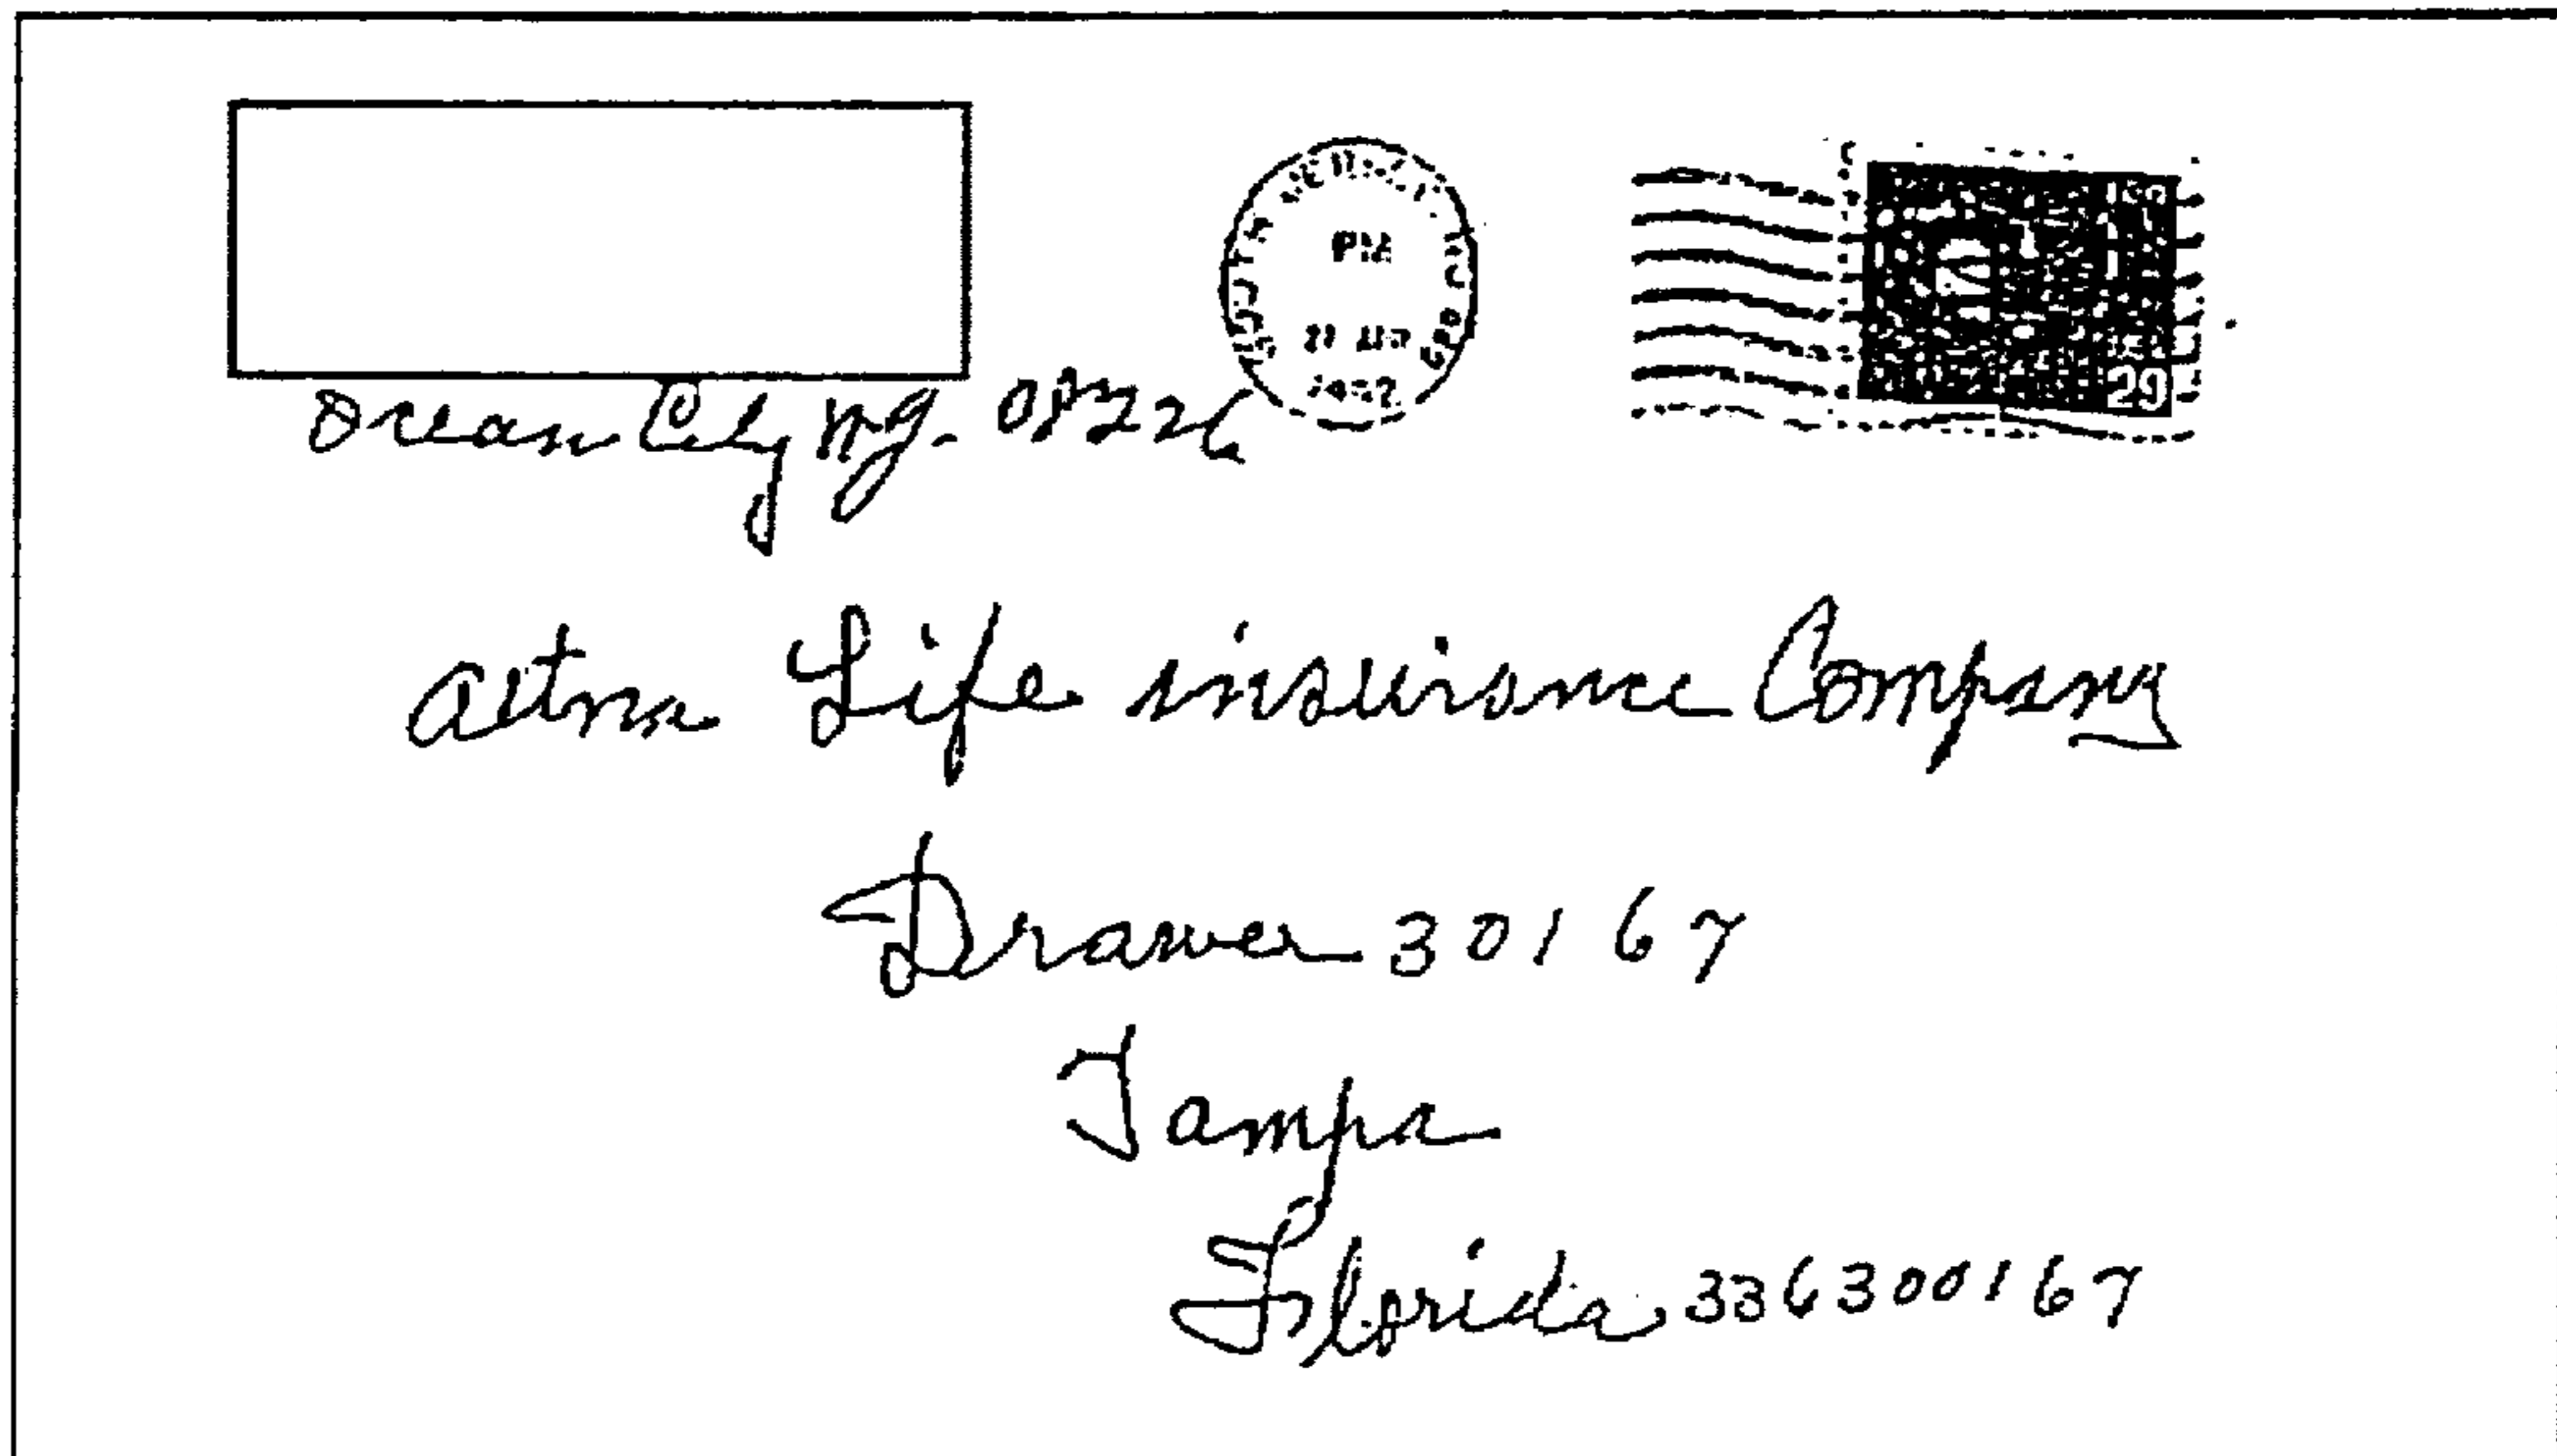 SOUTH JERSEY, NJ
PM
1992
29
Ocean City N.J. 08226
Aetna Life insurance Company
Drawer 30167
Tampa
Florida 336300167